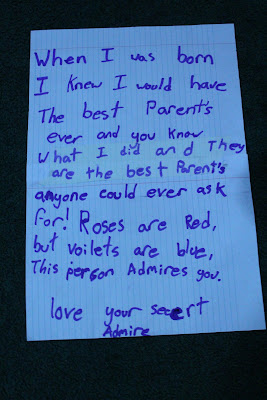 When I was born
I knew I would have
The best Parent's
ever and you know
what I did and They
are the best Parent's
anyone could ever ask
for! Roses are Red,
but voilets are blue,
This person Admires you.
love your secert
Admire